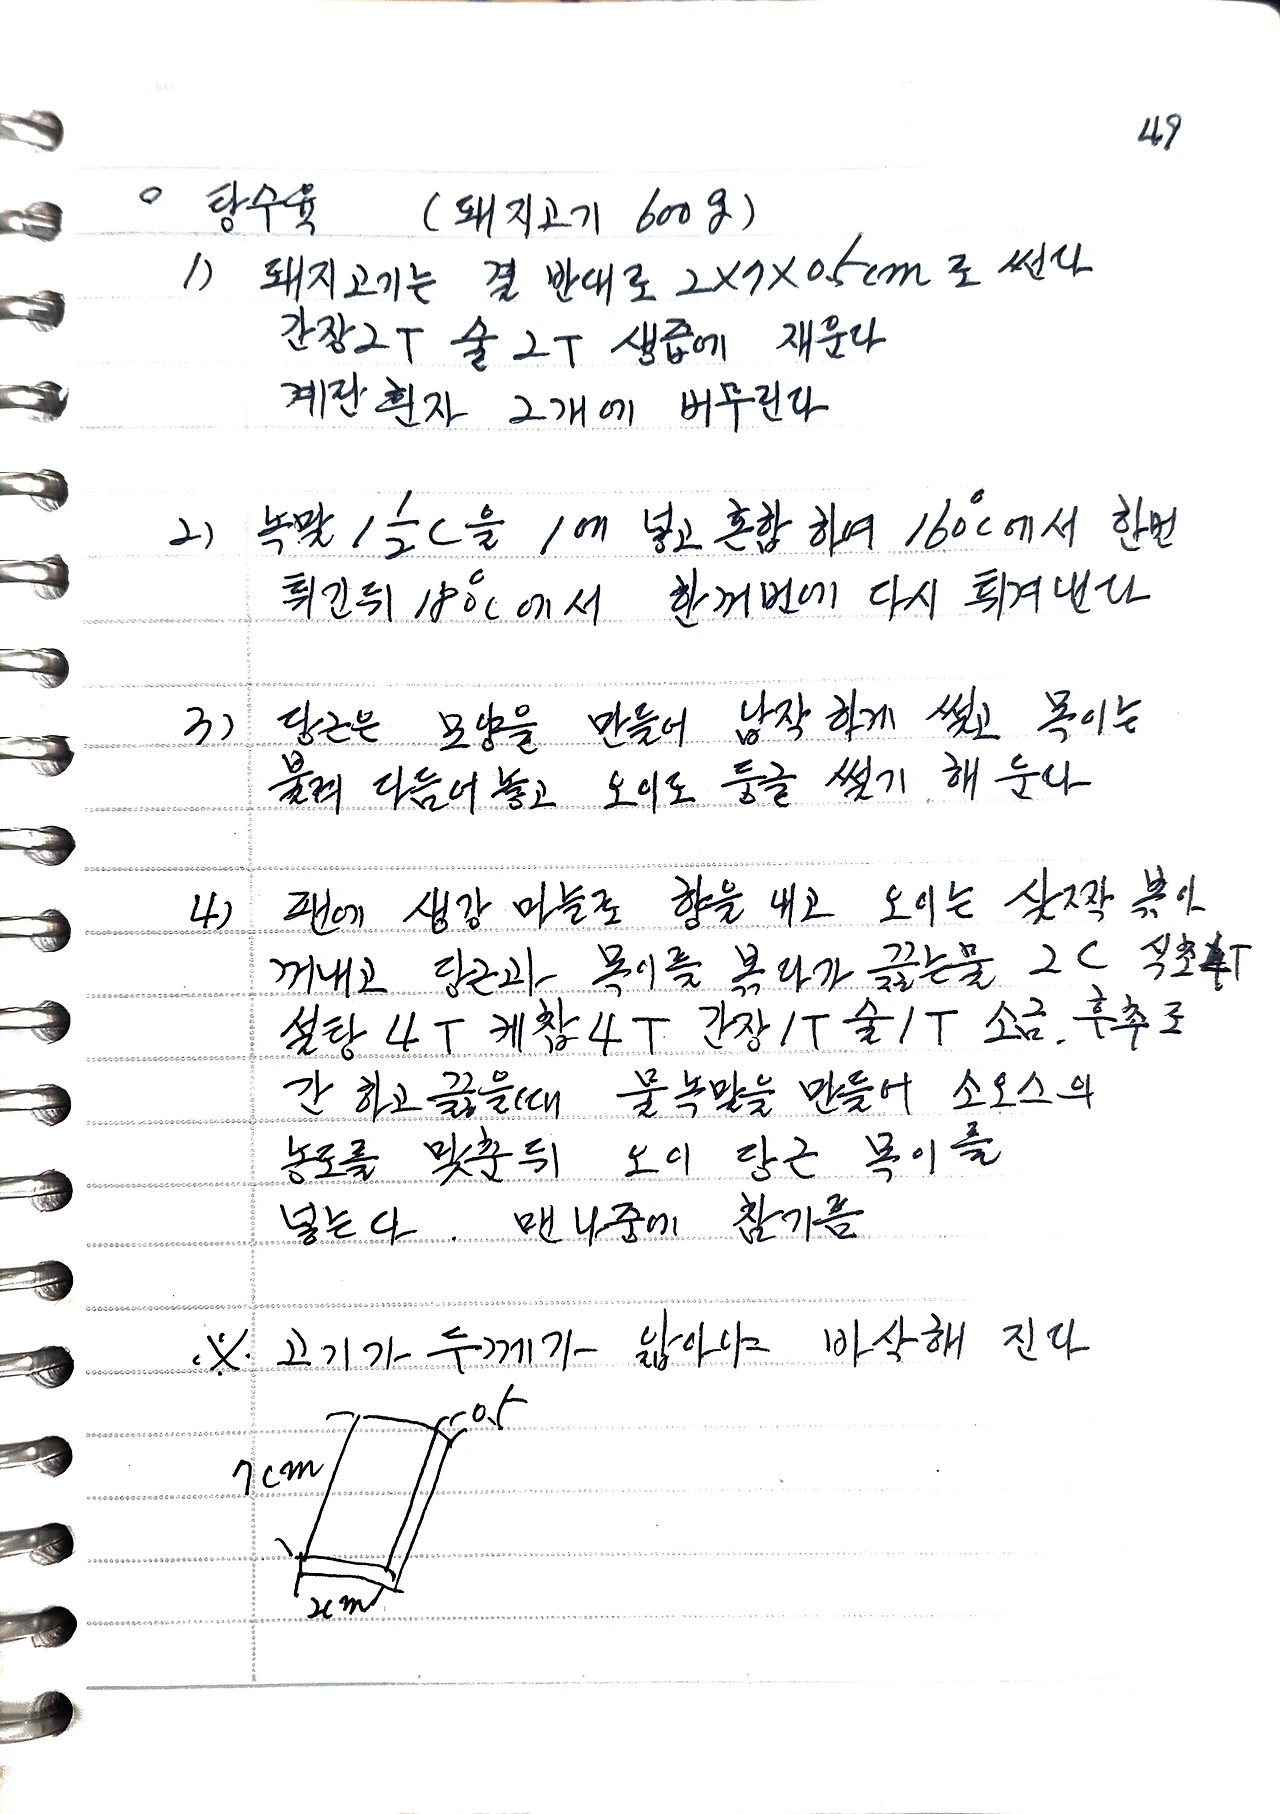 49
○ 탕수육 (돼지고기 600g)
1) 돼지고기는 결 반대로 2X7X0.5cm로 썬다
간장2T 술2T 생즙에 재운다
계란 흰자 2개에 버무린다
2) 녹말 1½C을 1에 넣고 혼합 하여 160°C에서 한번
튀긴뒤 180°C에서 한꺼번에 다시 튀겨 낸다
3) 당근은 모양을 만들어 납작하게 썰고 목이는
불려 다듬어 놓고 오이도 둥글 썰기 해 둔다
4) 팬에 생강 마늘로 향을 내고 오이는 살짝 볶아
꺼내고 당근과 목이를 볶다가 끓는물 2C 식초4T
설탕 4T 케찹4T 간장1T 술1T 소금. 후추로
간 하고 끓을때 물녹말을 만들어 소오스의
농도를 맞춘뒤 오이 당근 목이를
넣는다. 맨 나중에 참기름
※ 고기가 두께가 얇아야 바삭해 진다
0.5
7cm
2cm